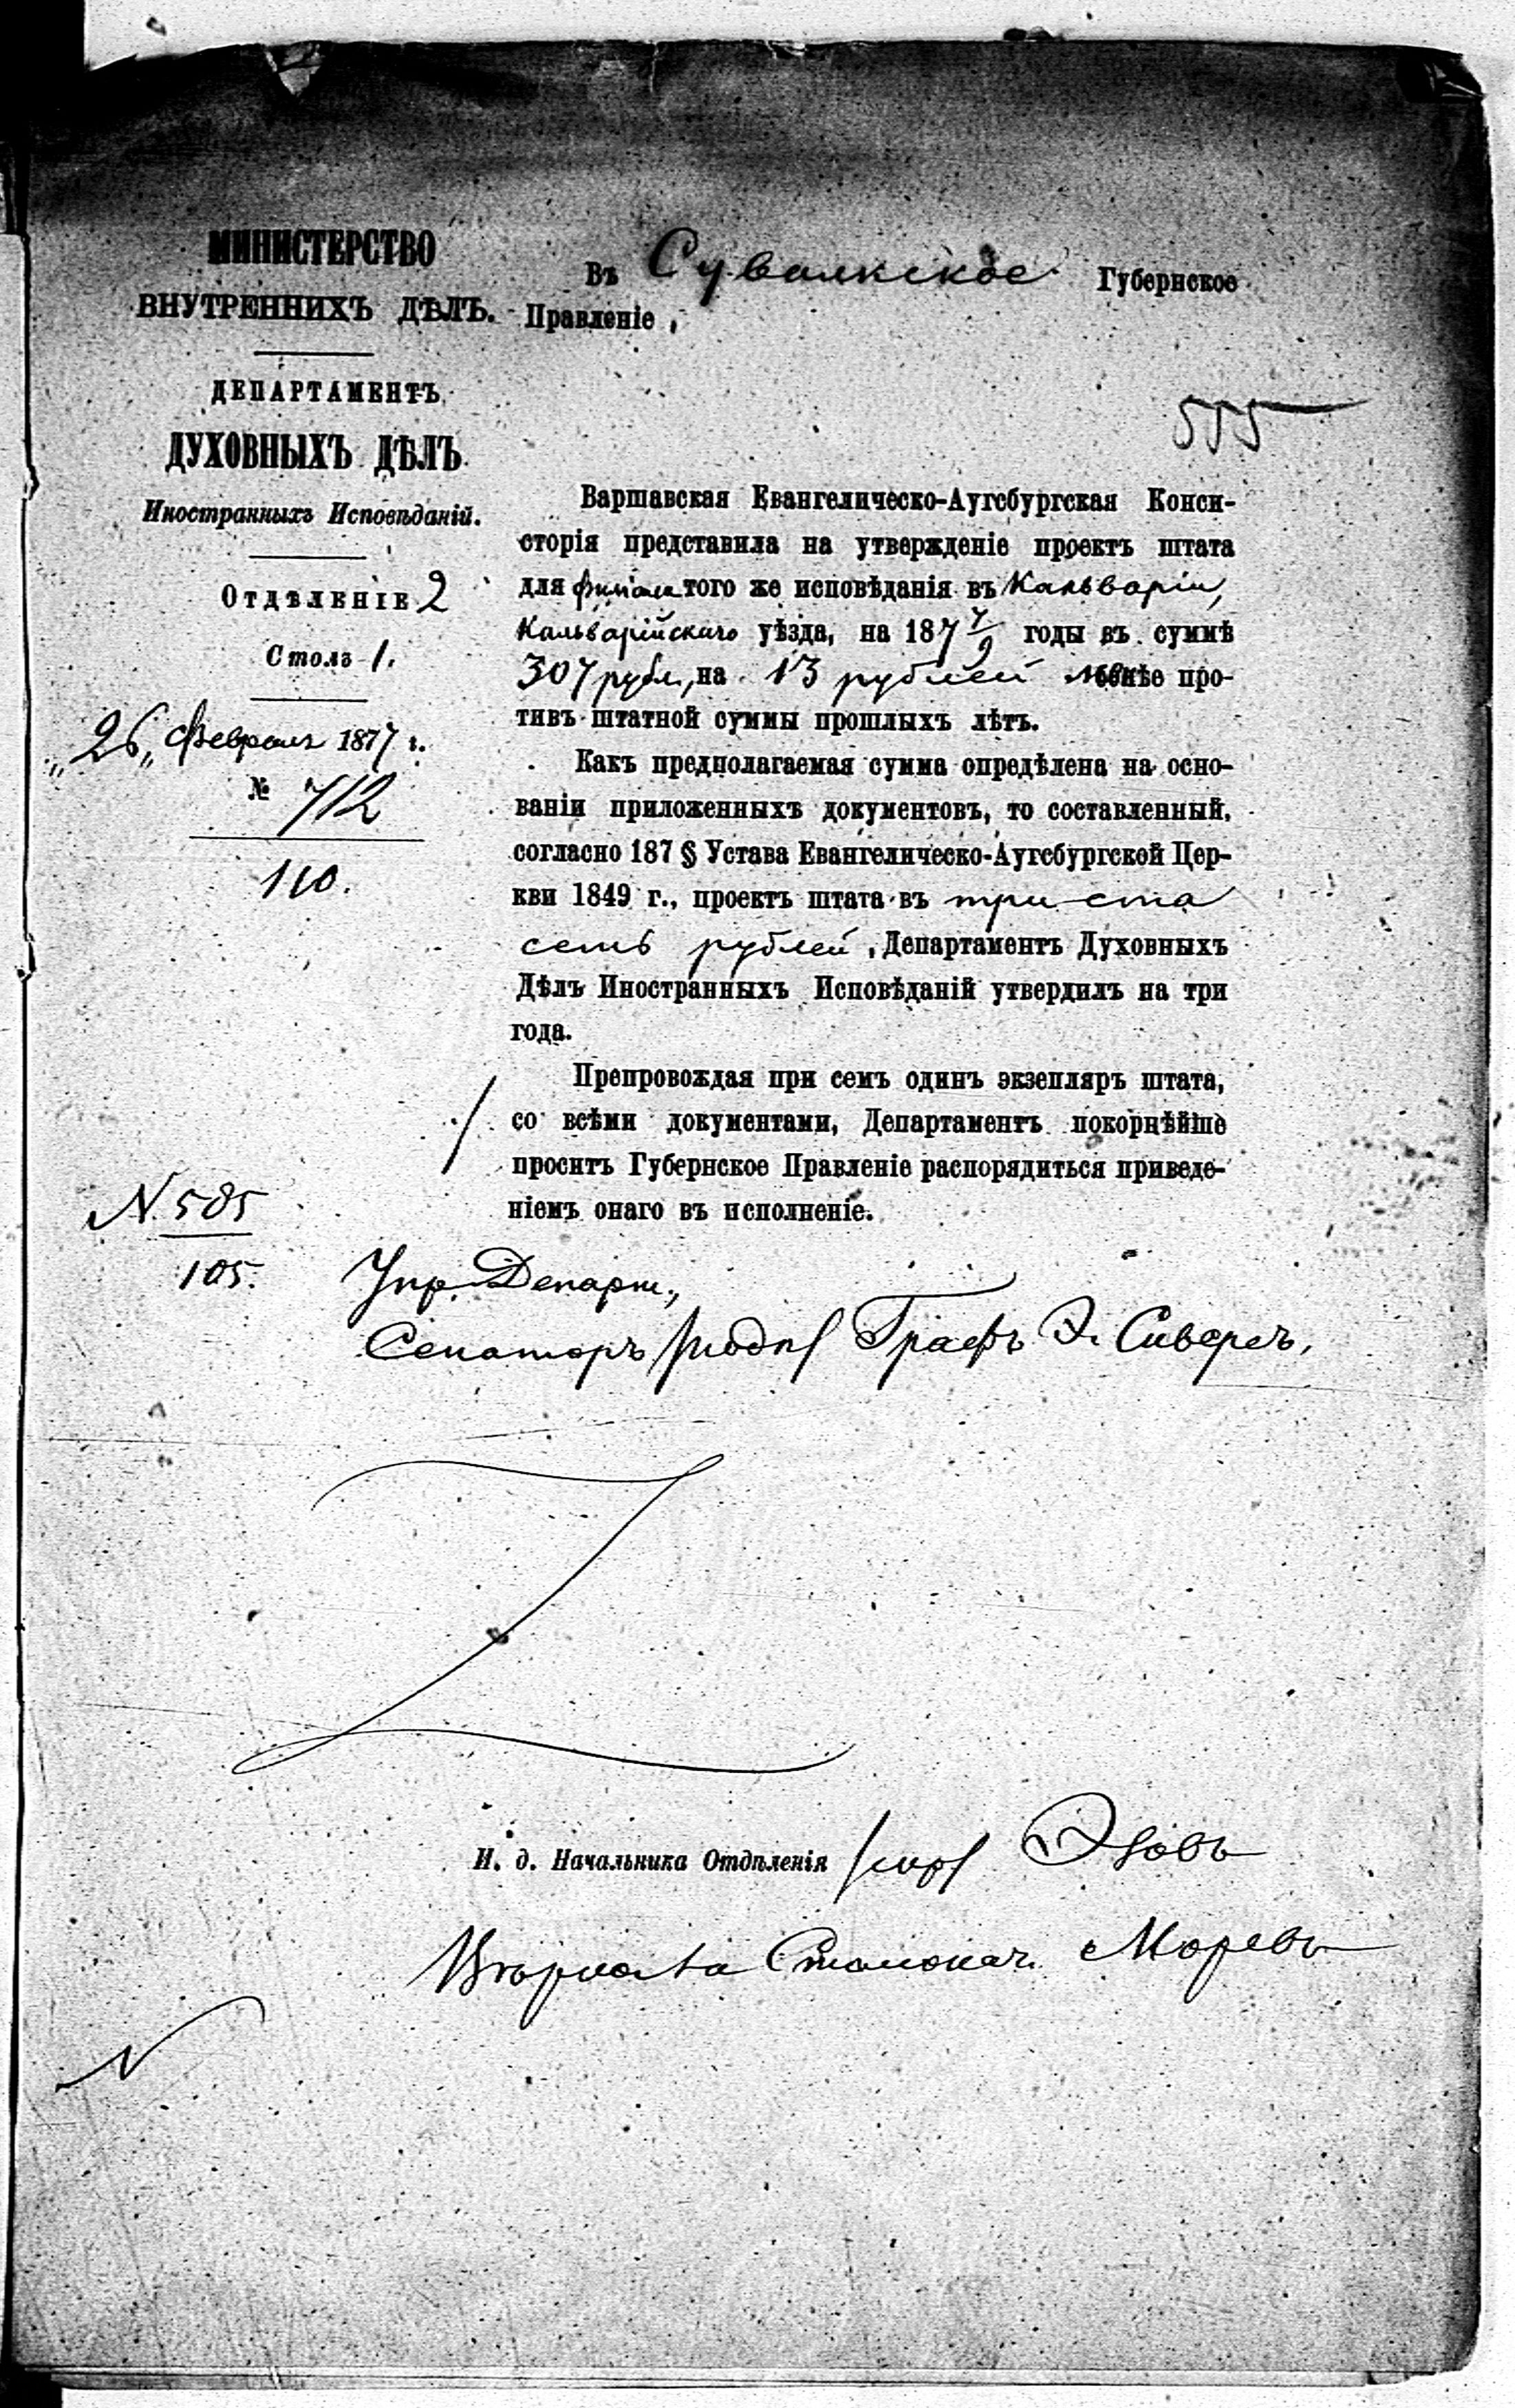 МИНИСТЕРСТВО
ВНУТРЕННИХЪ ДѢЛЪ.
ДЕПАРТАМЕНТЪ
ДУХОВНЫХЪ ДѢЛЪ
Иностранныхъ Исповѣданій.
Отдѣленіе 2
Столъ 1.
„26„ Февраля 1877 г.
№ 712
110.
N. 585
105.
Въ Сувалкское Губернское
Правленіе,
555
Варшавская Евангелическо-Аугсбургская Конси-
сторія представила на утвержденіе проектъ штата
для филіала того же исповѣданія въ Кальваріи,
Кальварійскаго уѣзда, на 187 7/9 годы въ суммѣ
307 рубл., на 13 рублей менѣе про-
тивъ штатной суммы прошлыхъ лѣтъ.
Какъ предполагаемая сумма опредѣлена на осно-
ваніи приложенныхъ документовъ, то составленный,
согласно 187 § Устава Евангелическо-Аугсбургской Цер-
кви 1849 г., проектъ штата въ триста
семь рублей, Департаментъ Духовныхъ
Дѣлъ Иностранныхъ Исповѣданій утвердилъ на три
года.
Препровождая при семъ одинъ экзепляръ штата,
со всѣми документами, Департаментъ покорнѣйше
проситъ Губернское Правленіе распорядиться приведе-
ніемъ онаго въ исполненіе.
Упр. Департ.,
Сенаторъ /подп/ Графъ Э. Сиверсъ,
И. д. Начальника Отдѣленія /скр/ Эзовъ
Вѣрно: за Столонач. Моревъ